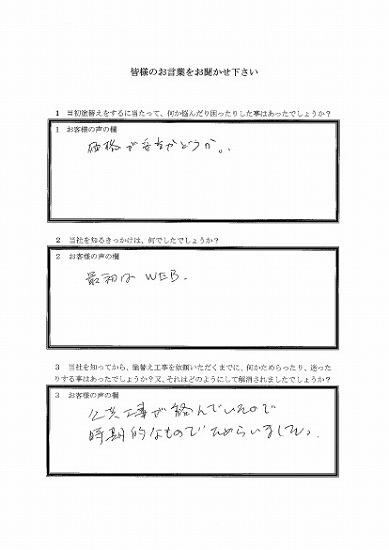 皆様のお言葉をお聞かせ下さい
1 当初塗替えをするに当たって、何か悩んだり困ったりした事はあったでしょうか?
1 お客様の声の欄
価格が妥当かどうか。
2 当社を知るきっかけは、何でしたでしょうか?
2 お客様の声の欄
最初は WEB.
3 当社を知ってから、塗替え工事を依頼いただくまでに、何かためらったり、迷った
りする事はあったでしょうか?又、それはどのようにして解消されましたでしょうか?
3 お客様の声の欄
公共工事が絡んでいたので
時期的なものでためらいました。